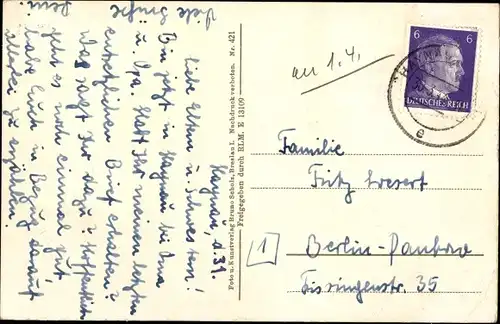 Haynau, d. 31.
Liebe Eltern
u. Schwestern!
Bin jetzt in Haynau bei Oma
u. Opa. Habt Ihr meinen letzten
entsetzlichen Brief erhalten?
Was sagt Ihr dazu? Hoffentlich
geht es noch einmal gut
habe Euch in Bezug darauf
allerlei zu erzählen.
Viele Grüße
Foto u. Kunstverlag Bruno Scholz, Breslau I. Nachdruck verboten. Nr. 421
Freigegeben durch RLM. E 13100
an 1.4.
6 6
DEUTSCHES REICH
e
Familie
Fritz
1 Berlin-Pankow
Kissingenstr. 35